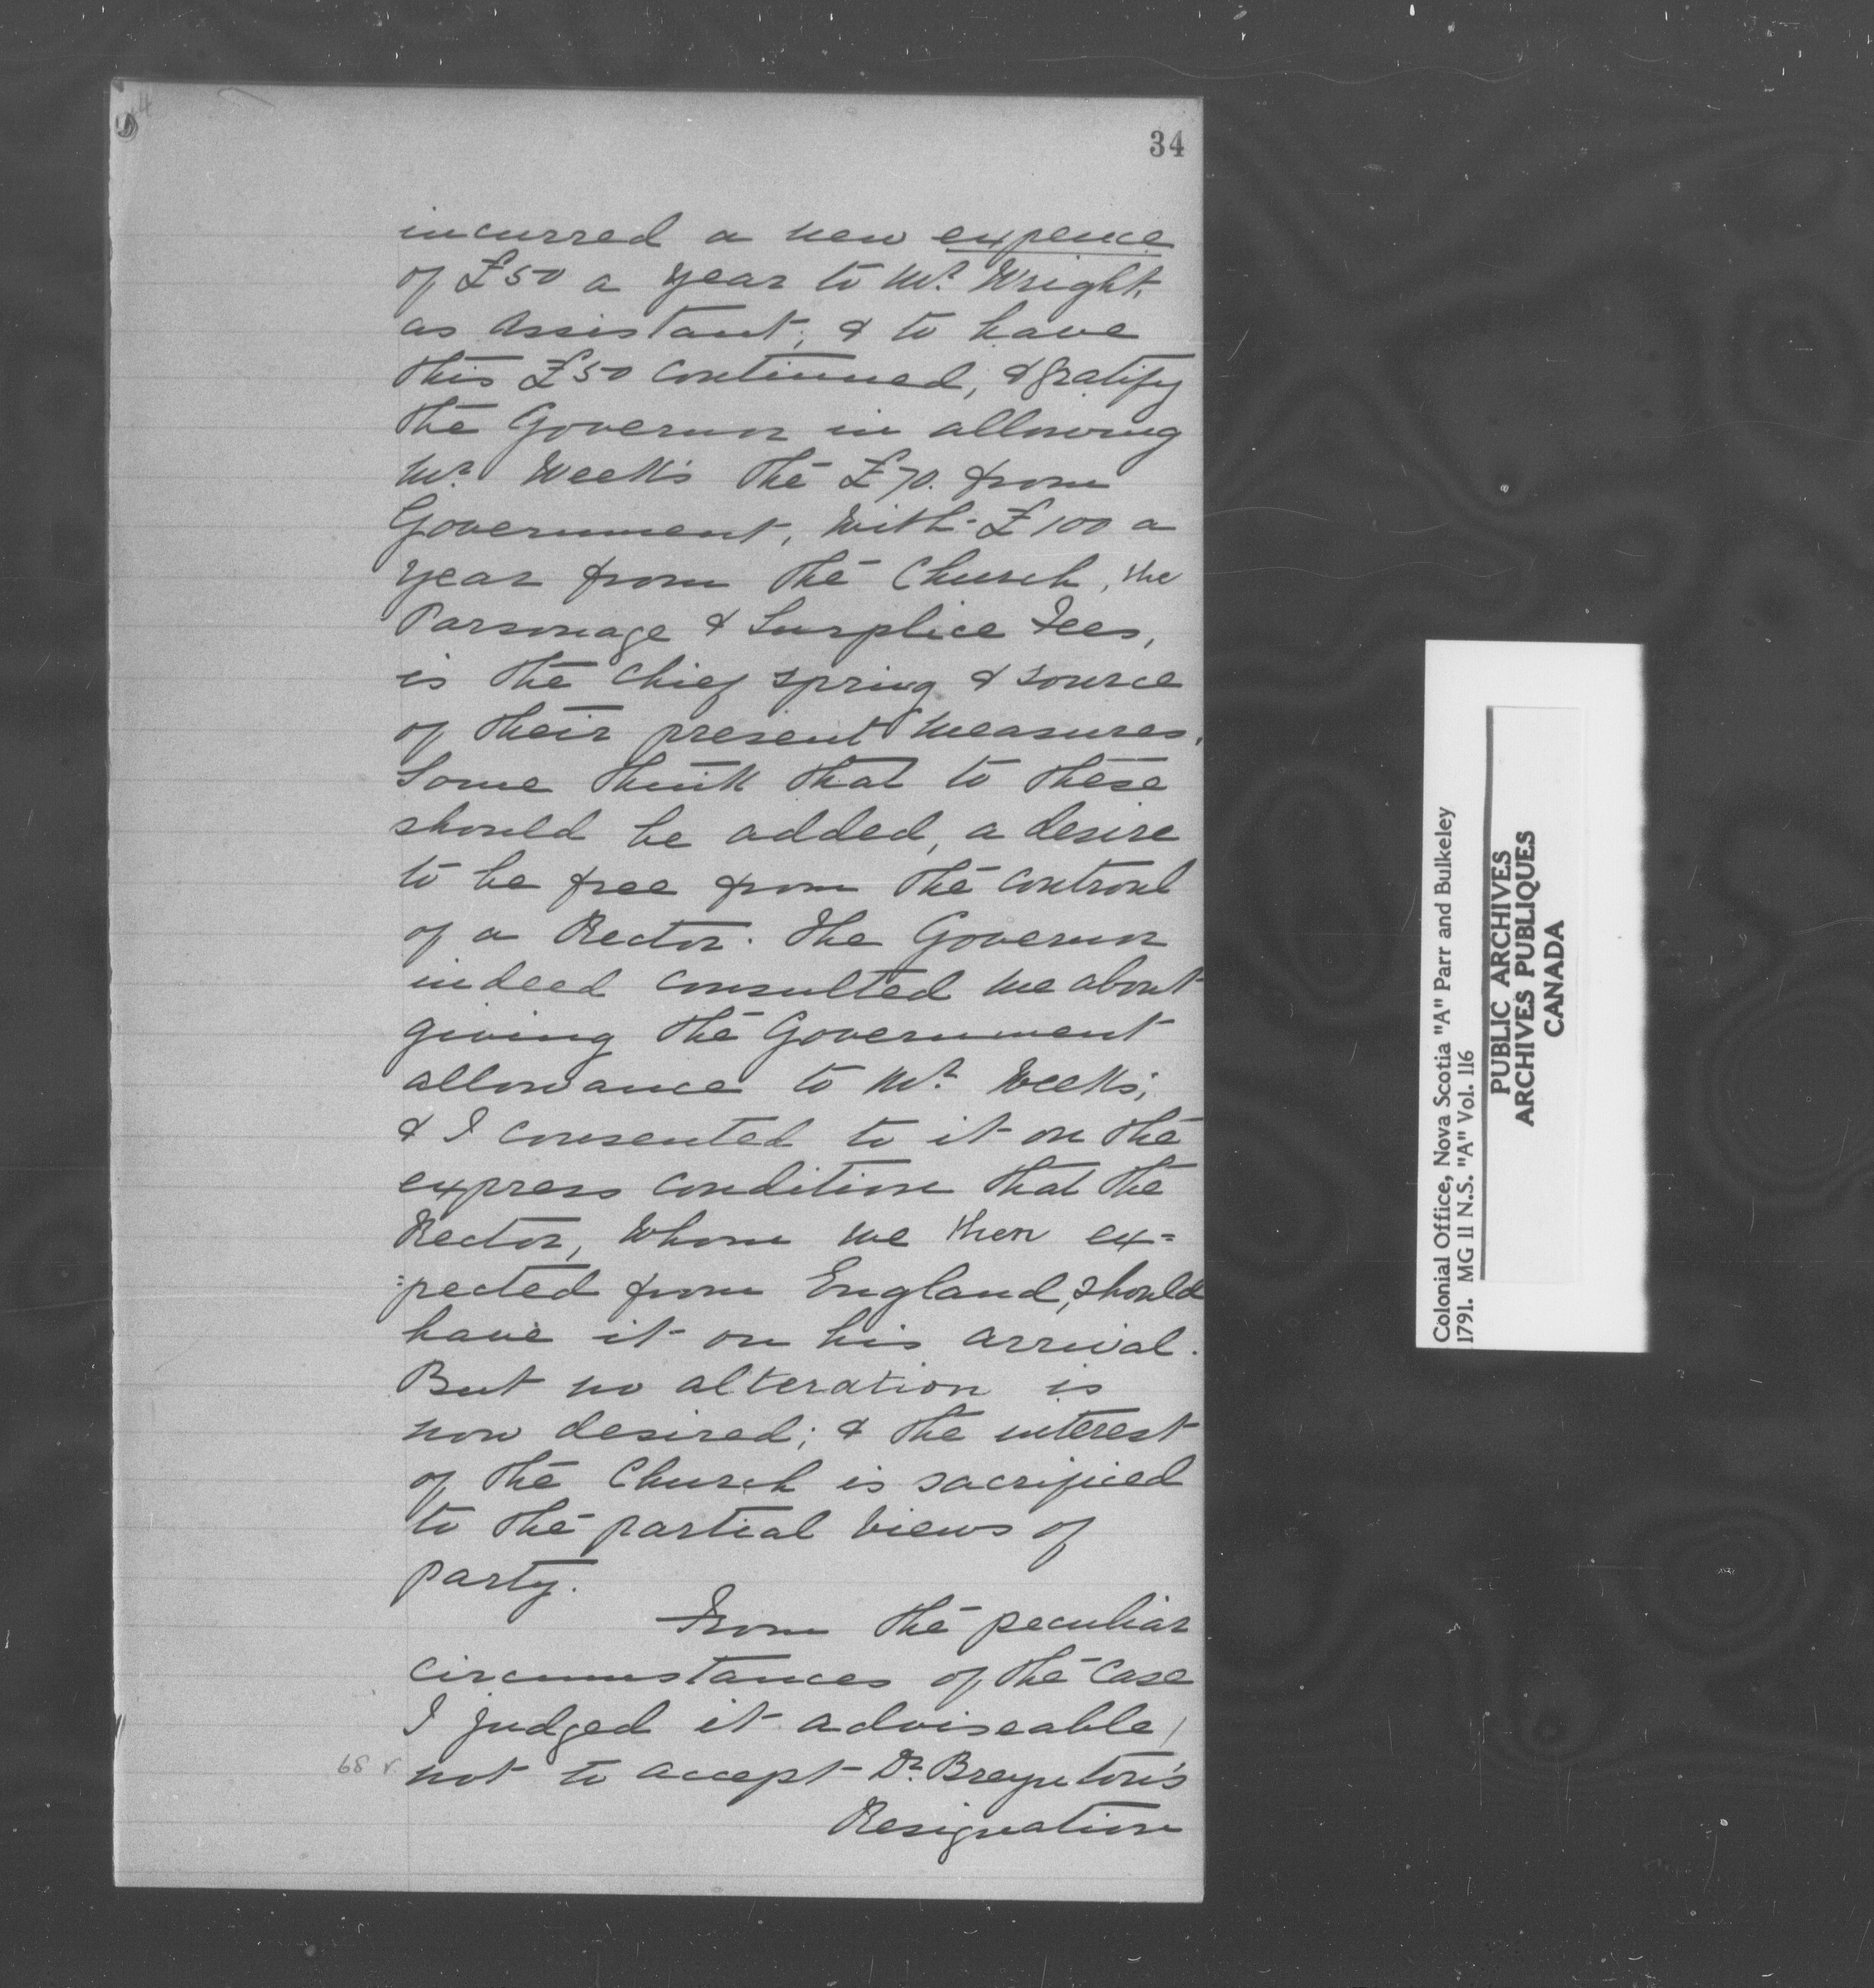 34
incurred a new expence
of £50 a year to Mr. Wright,
as Assistant; & to have
this £50 continued, & gratify
the Governor in allowing
Mr. Weeks the £70. from
Government, with £100 a
year from the Church, the
Parsonage & Surplice Fees,
is the chief spring & source
of their present measures.
Some think that to these
should be added, a desire
to be free from the controul
of a Rector. The Governor
indeed consulted me about
giving the Government
allowance to Mr. Weeks;
& I consented to it on the
express condition that the
Rector, whom we then ex=
=pected from England, should
have it on his arrival.
But no alteration is
now desired; & the interest
of the Church is sacrificed
to the partial views of
party.
From the peculiar
circumstances of the case
I judged it adviseable,
68 v. not to accept Dr. Breynton's
Resignation
Colonial Office, Nova Scotia "A" Parr and Bulkeley
1791. MG 11 N.S. "A" Vol. 116
PUBLIC ARCHIVES
ARCHIVES PUBLIQUES
CANADA